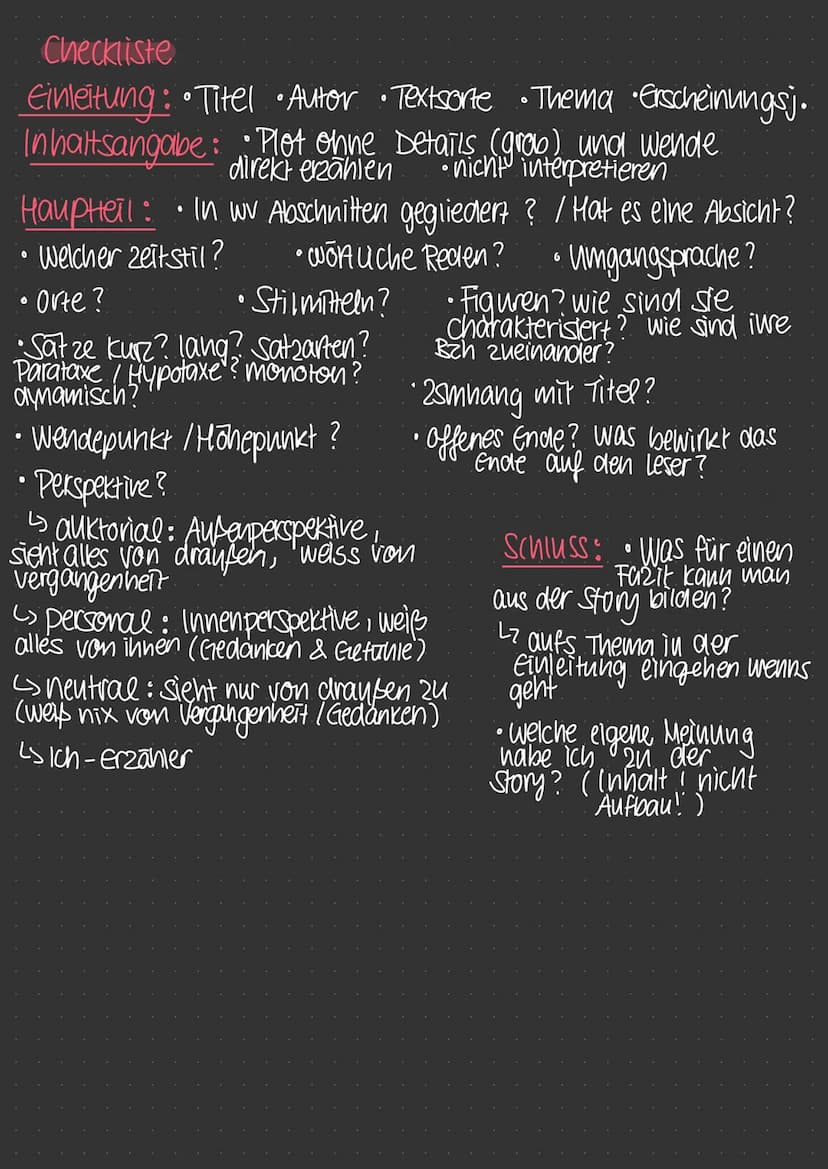 Checkliste
Einleitung: • Titel • Autor • Textsorte • Thema • Erscheinungsj.
Inhaltsangabe: • Plot ohne Details (grob) und wende
direkt erzählen • nicht interpretieren
Hauptteil: • In wv Abschnitten gegliedert? / Hat es eine Absicht?
• Welcher zeitstil? • wörtliche Reden? • Umgangsprache?
• Orte? • Stilmitteln? • Figuren? wie sind sie
charakterisiert? wie sind ihre
Bzh zueinander?
• Sätze kurz? lang? Satzarten?
Parataxe / Hypotaxe? monoton?
dynamisch?
• Zsmhang mit Titel?
• Wendepunkt / Höhepunkt?
• Offenes Ende? Was bewirkt das
Ende auf den Leser?
• Perspektive?
↳ auktorial: Außenperspektive,
sieht alles von draußen, weiss von
vergangenheit
↳ personal: Innenperspektive, weiß
alles von ihnen (Gedanken & Gefühle)
↳ neutral: sieht nur von draußen zu
(weiß nix von Vergangenheit / Gedanken)
↳ Ich-Erzähler
Schluss: • Was für einen
Fazit kann man
aus der Story bilden?
↳ aufs Thema in der
Einleitung eingehen wenns
geht
• welche eigene Meinung
habe ich zu der
Story? (Inhalt! nicht
Aufbau!)